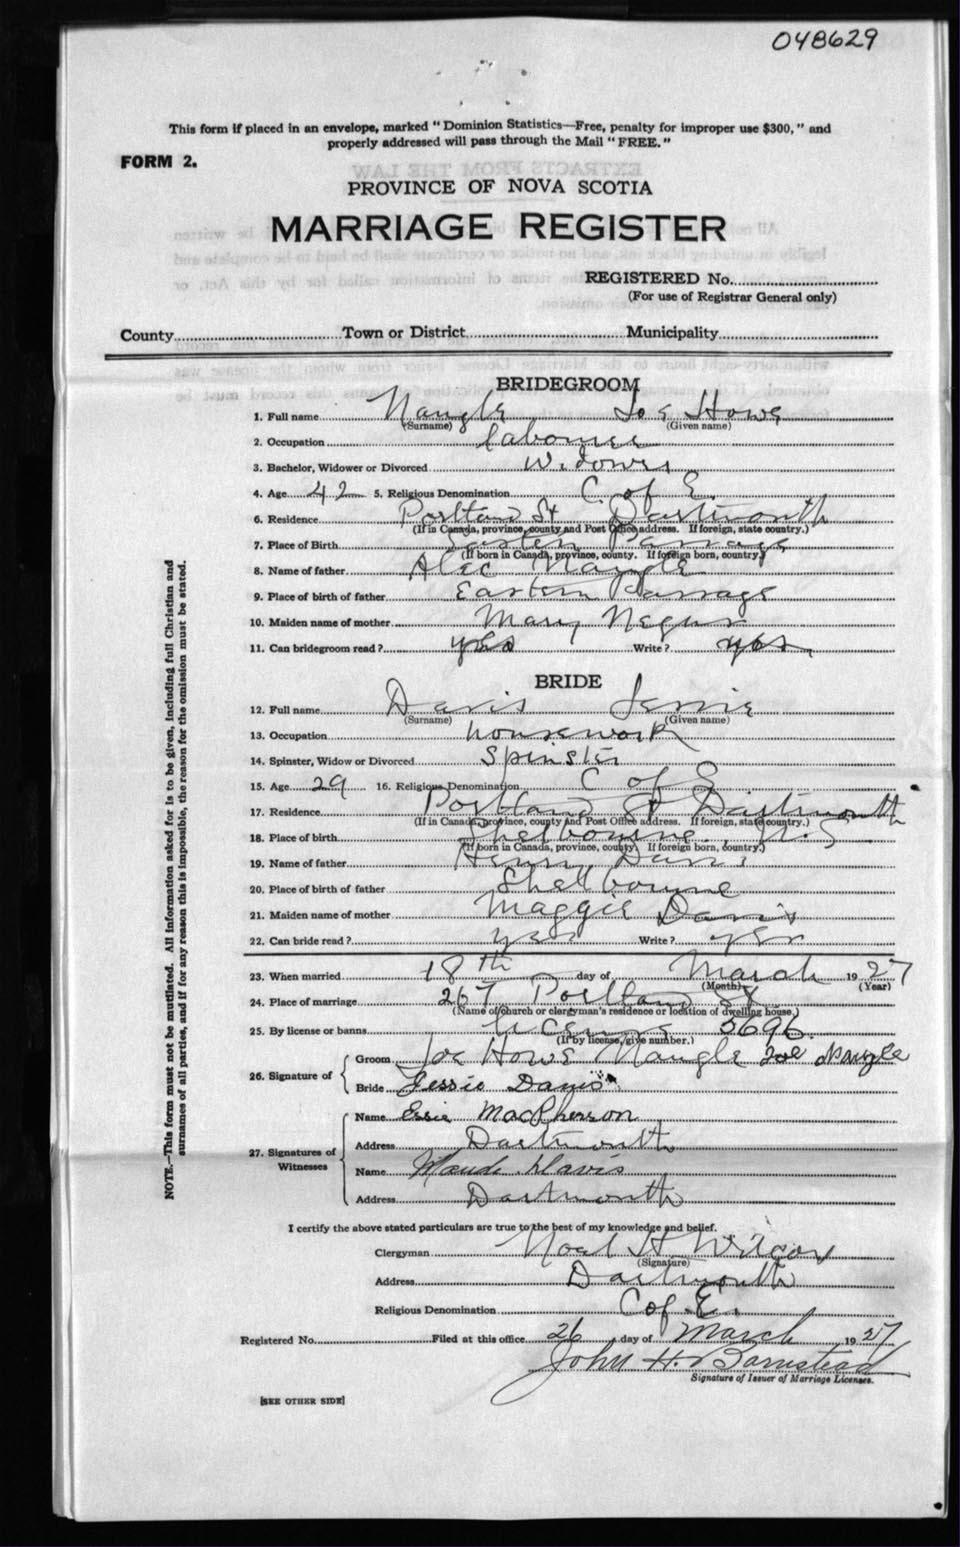 048629
This form if placed in an envelope, marked "Dominion Statistics—Free, penalty for improper use $300," and
properly addressed will pass through the Mail "FREE."
FORM 2.
PROVINCE OF NOVA SCOTIA
MARRIAGE REGISTER
REGISTERED No.
(For use of Registrar General only)
County Town or District Municipality
BRIDEGROOM
1. Full name Naugle Joe Howe
(Surname) (Given name)
2. Occupation labourer
3. Bachelor, Widower or Divorced Widower
4. Age 42 5. Religious Denomination C. of E.
6. Residence Portland St Dartmouth
(If in Canada, province, county and Post Office address. If foreign, state country.)
7. Place of Birth Eastern Passage
(If born in Canada, province, county. If foreign born, country.)
8. Name of father Alec Naugle
9. Place of birth of father Eastern Passage
10. Maiden name of mother Mary Negus
11. Can bridegroom read? yes Write? yes
BRIDE
12. Full name Davis Jessie
(Surname) (Given name)
13. Occupation housework
14. Spinster, Widow or Divorced Spinster
15. Age 29 16. Religious Denomination C of E
17. Residence Portland St Dartmouth
(If in Canada, province, county and Post Office address. If foreign, state country.)
18. Place of birth Shelbourne N.S
(If born in Canada, province, county. If foreign born, country.)
19. Name of father Henry Davis
20. Place of birth of father Shelbourne
21. Maiden name of mother Maggie Davis
22. Can bride read? yes Write? yes
23. When married 18th day of March 1927
(Month) (Year)
24. Place of marriage 267 Portland St
(Name of church or clergyman's residence or location of dwelling house.)
25. By license or banns license 5696
(If by license, give number.)
26. Signature of
Groom Joe Howe Naugle Joe Naugle
Bride Jessie Davis
27. Signatures of Witnesses
Name Essie MacPherson
Address Dartmouth
Name Maude Davis
Address Dartmouth
I certify the above stated particulars are true to the best of my knowledge and belief.
Clergyman Noel H Wilcox
(Signature)
Address Dartmouth
Religious Denomination C of E.
Registered No. Filed at this office 26 day of March 1927
John H. Barnstead
Signature of Issuer of Marriage Licenses.
[SEE OTHER SIDE]
NOTE.—This form must not be mutilated. All information asked for is to be given, including full Christian and
surnames of all parties, and if for any reason this is impossible, the reason for the omission must be stated.